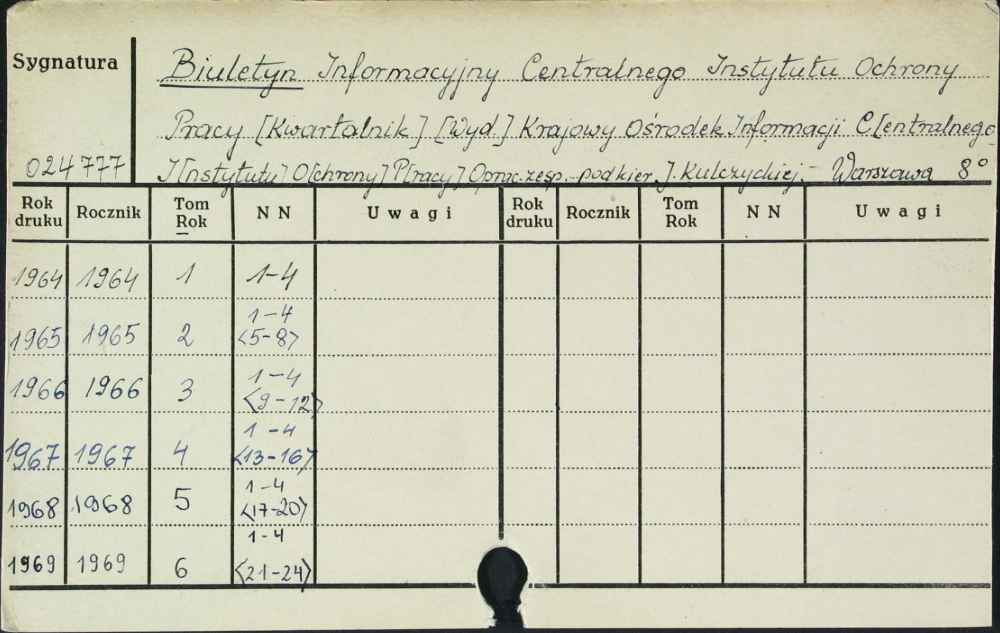 Sygnatura
Biuletyn Informacyjny Centralnego Instytutu Ochrony
Pracy [Kwartalnik] [Wyd] Krajowy Ośrodek Informacji C[entralnego]
024777 I[nstytutu] O[chrony] P[racy] Oprac. zesp. pod kier. J. Kulczyckiej. - Warszawa 8°
Rok druku Rocznik Tom Rok NN Uwagi Rok druku Rocznik Tom Rok NN Uwagi
1964 1964 1 1-4
1965 1965 2 1-4 <5-8>
1966 1966 3 1-4 <9-12>
1967 1967 4 1-4 <13-16>
1968 1968 5 1-4 <17-20>
1969 1969 6 1-4 <21-24>